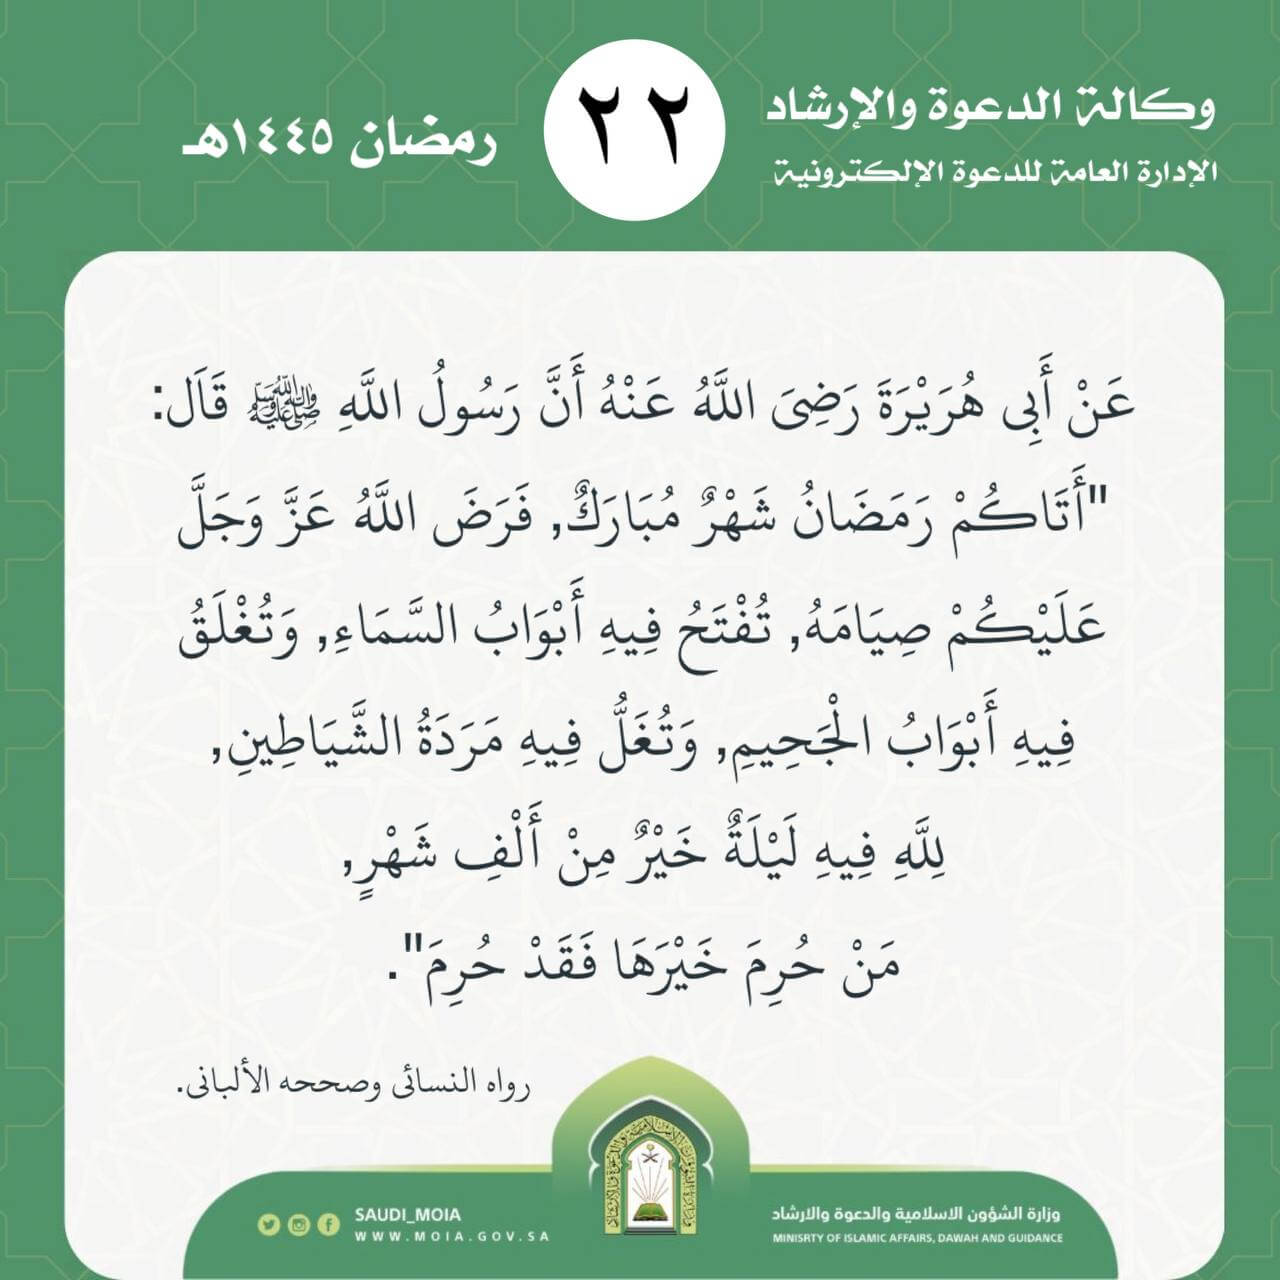 وكالة الدعوة والإرشاد
الإدارة العامة للدعوة الإلكترونية
٢٢
رمضان ١٤٤٥هـ
عَنْ أَبِى هُرَيْرَةَ رَضِىَ اللَّهُ عَنْهُ أَنَّ رَسُولُ اللَّهِ ﷺ قَالَ:
"أَتَاكُمْ رَمَضَانُ شَهْرٌ مُبَارَكٌ, فَرَضَ اللَّهُ عَزَّ وَجَلَّ
عَلَيْكُمْ صِيَامَهُ, تُفْتَحُ فِيهِ أَبْوَابُ السَّمَاءِ, وَتُغْلَقُ
فِيهِ أَبْوَابُ الْجَحِيمِ, وَتُغَلُّ فِيهِ مَرَدَةُ الشَّيَاطِينِ,
لِلَّهِ فِيهِ لَيْلَةٌ خَيْرٌ مِنْ أَلْفِ شَهْرٍ,
مَنْ حُرِمَ خَيْرَهَا فَقَدْ حُرِمَ".
رواه النسائى وصححه الألبانى.
وزارة الشؤون الاسلامية والدعوة والارشاد
MINISRTY OF ISLAMIC AFFAIRS, DAWAH AND GUIDANCE
SAUDI_MOIA
WWW.MOIA.GOV.SA